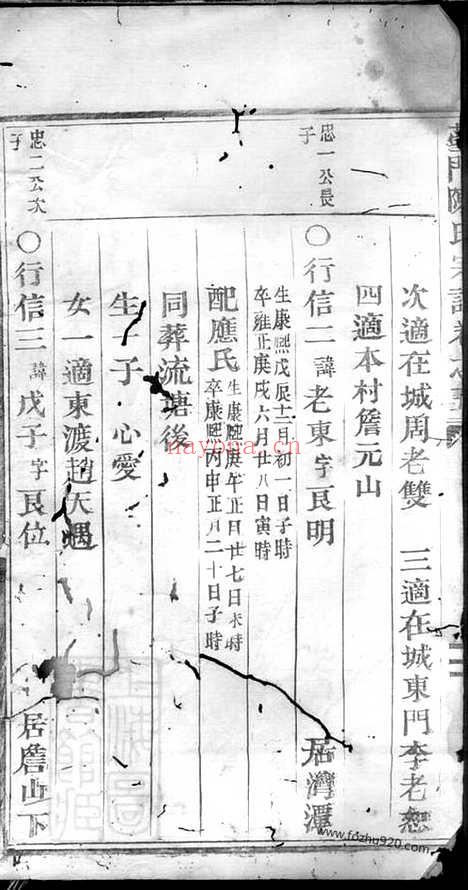 陳氏宗譜卷之
次適在城周老雙　三適在城東門李老恕
四適本村詹元山
忠一公長
子
○行信二　諱老東字良明　居灣潭
生康熙戊辰十二月初一日子時
卒雍正庚戌六月廿八日寅時
配應氏
生康熙庚午正月廿七日未時
卒康熙丙申正月二十日子時
同葬流塘後
生一子　心愛
女一適東渡趙天遇
忠二公次
子
○行信三　諱戊子字良位　居詹山下
nayona.cn
www.fozhu920.com